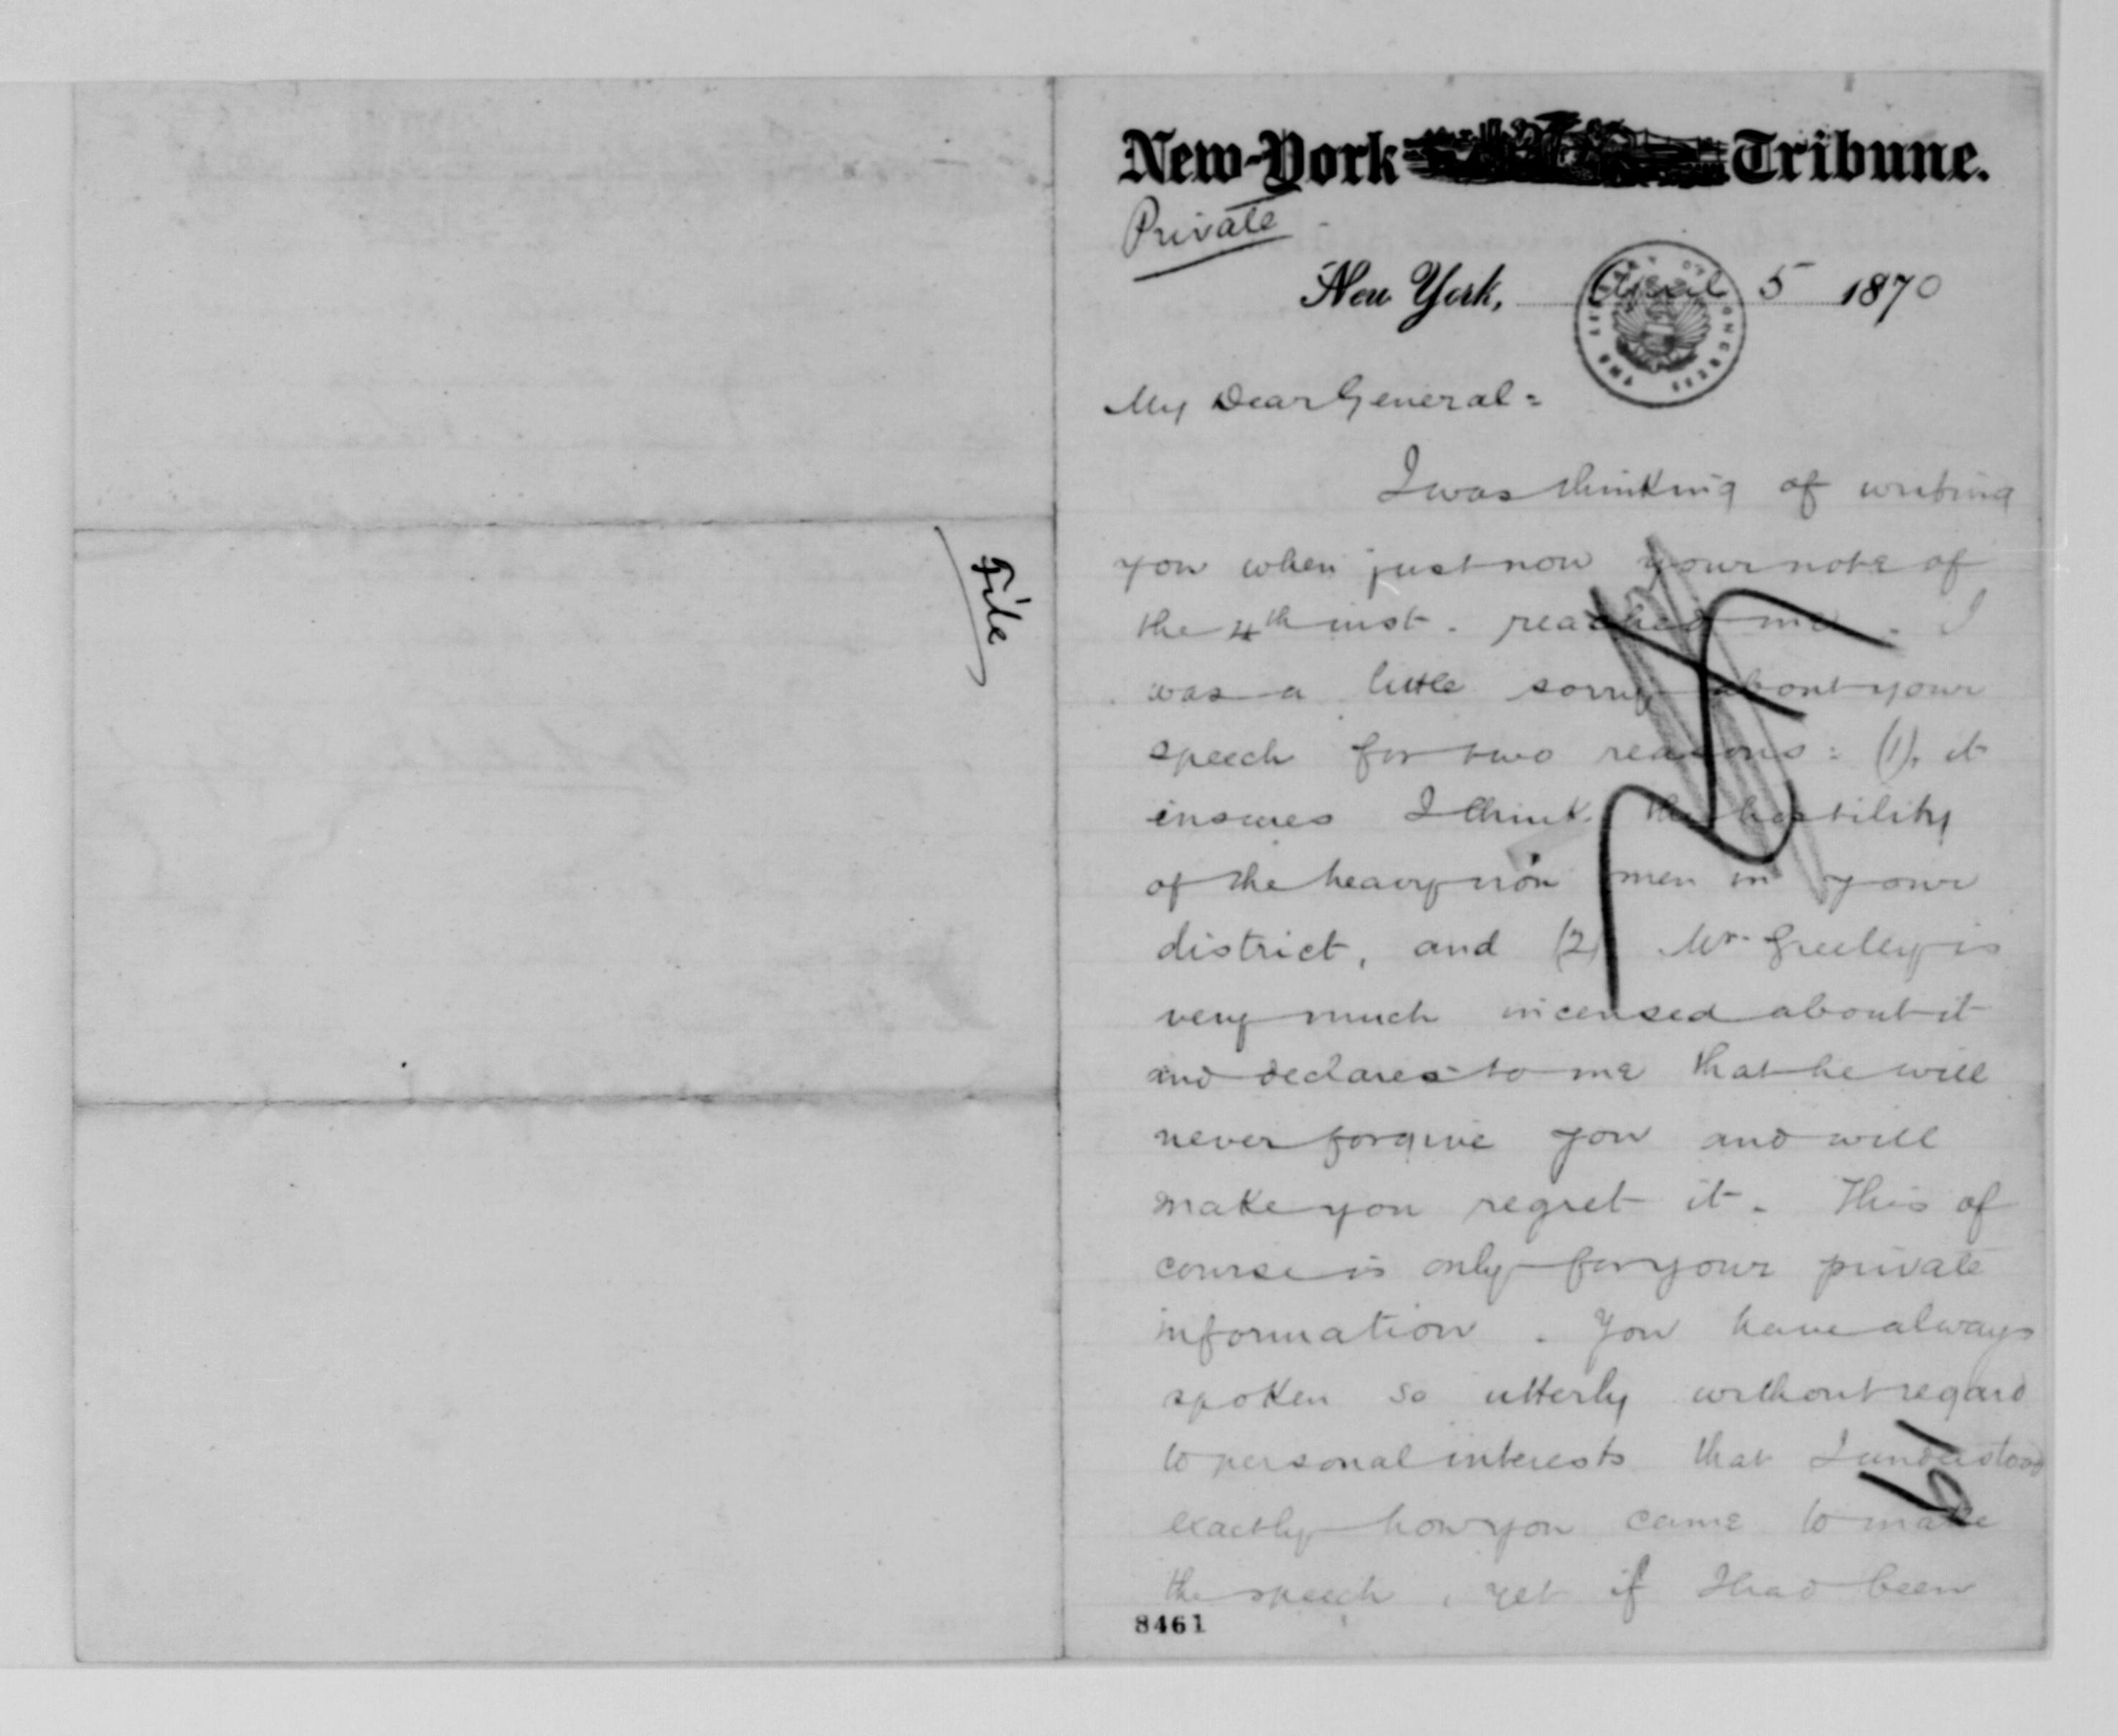 File
New-York Tribune.
Private
New York, April 5 1870
THE LIBRARY OF CONGRESS
My Dear General =
I was thinking of writing
you when just now your note of
the 4th inst. reached me. I
was a little sorry about your
speech for two reasons: (1), it
insures I think the hostility
of the heavy iron men in your
district, and (2) Mr. Greeley is
very much incensed about it
and declares to me that he will
never forgive you and will
make you regret it. This of
course is only for your private
information. You have always
spoken so utterly without regard
to personal interests that I understood
exactly how you came to make
the speech, yet if I had been
8461